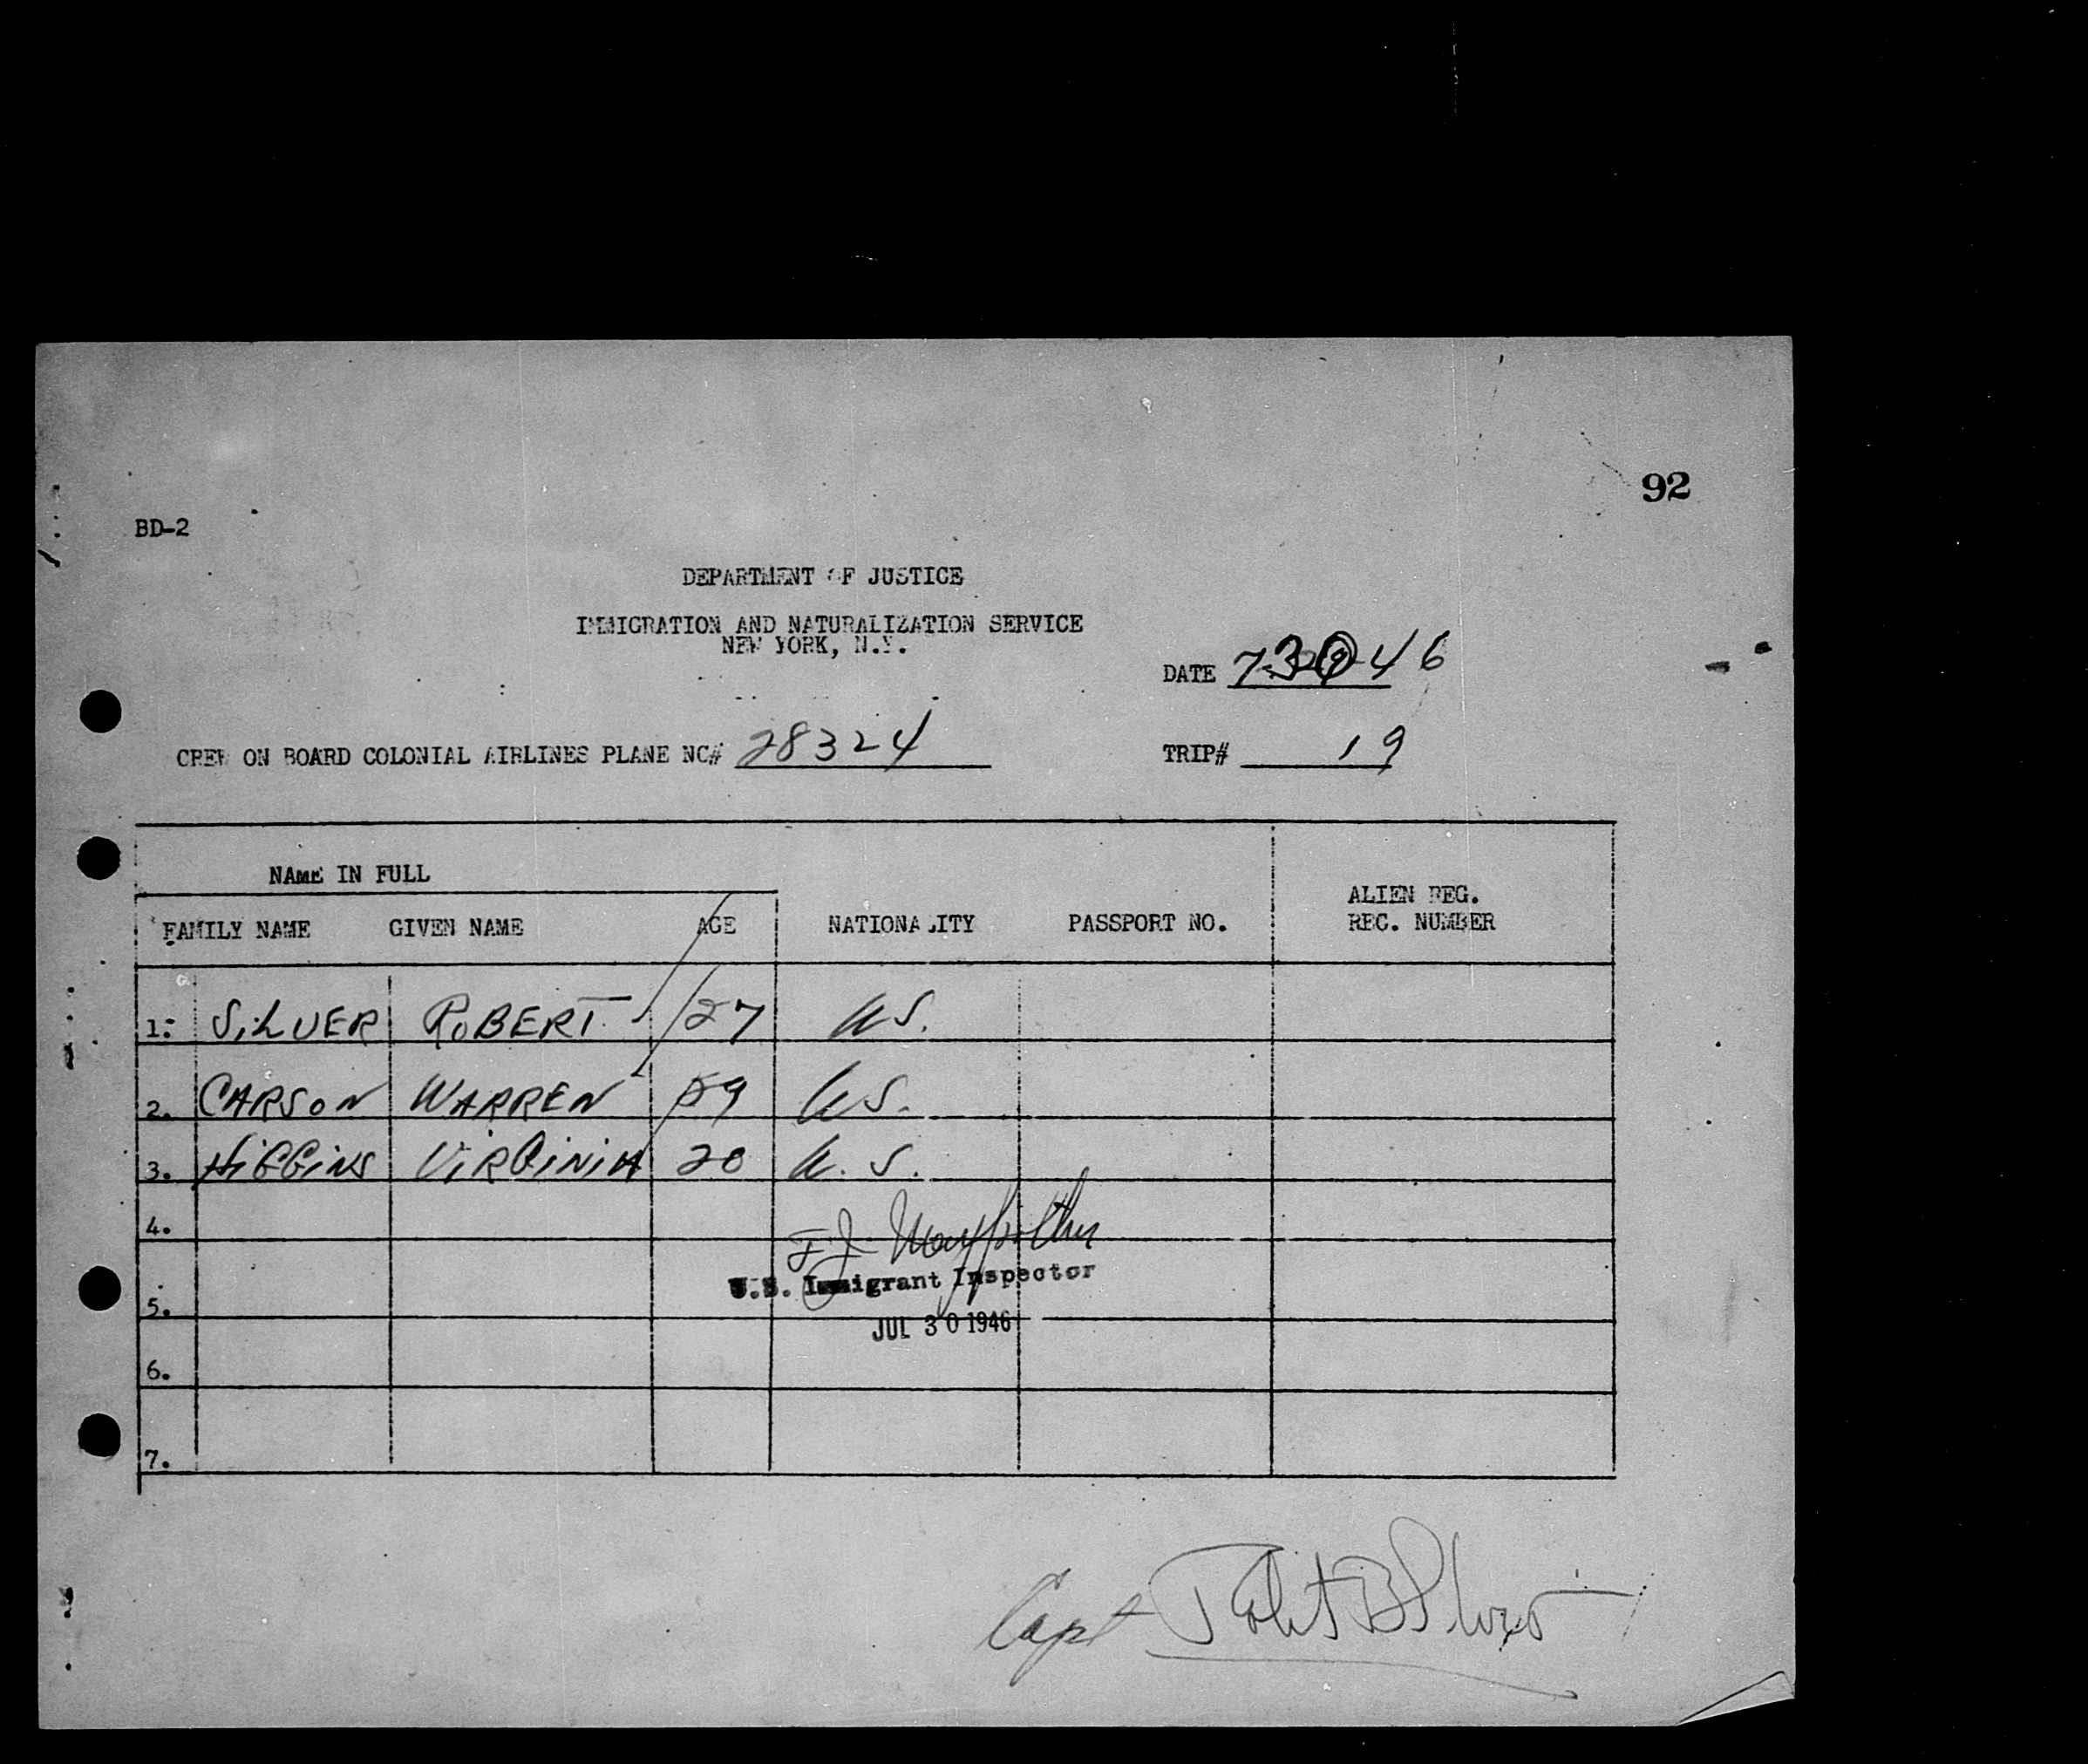 92
BD-2
DEPARTMENT OF JUSTICE
IMMIGRATION AND NATURALIZATION SERVICE
NEW YORK, N.Y.
DATE 7 30 46
CREW ON BOARD COLONIAL AIRLINES PLANE NC# 28324 TRIP# 19
NAME IN FULL
FAMILY NAME GIVEN NAME AGE NATIONALITY PASSPORT NO. ALIEN REG. REC. NUMBER
1. SILVER ROBERT 27 US.
2. CARSON WARREN 29 US.
3. HIGGINS VIRGINIA 20 U.S.
4. F J
U.S. Immigrant Inspector
5.
JUL 30 1946
6.
7.
Capt Robt B Silver